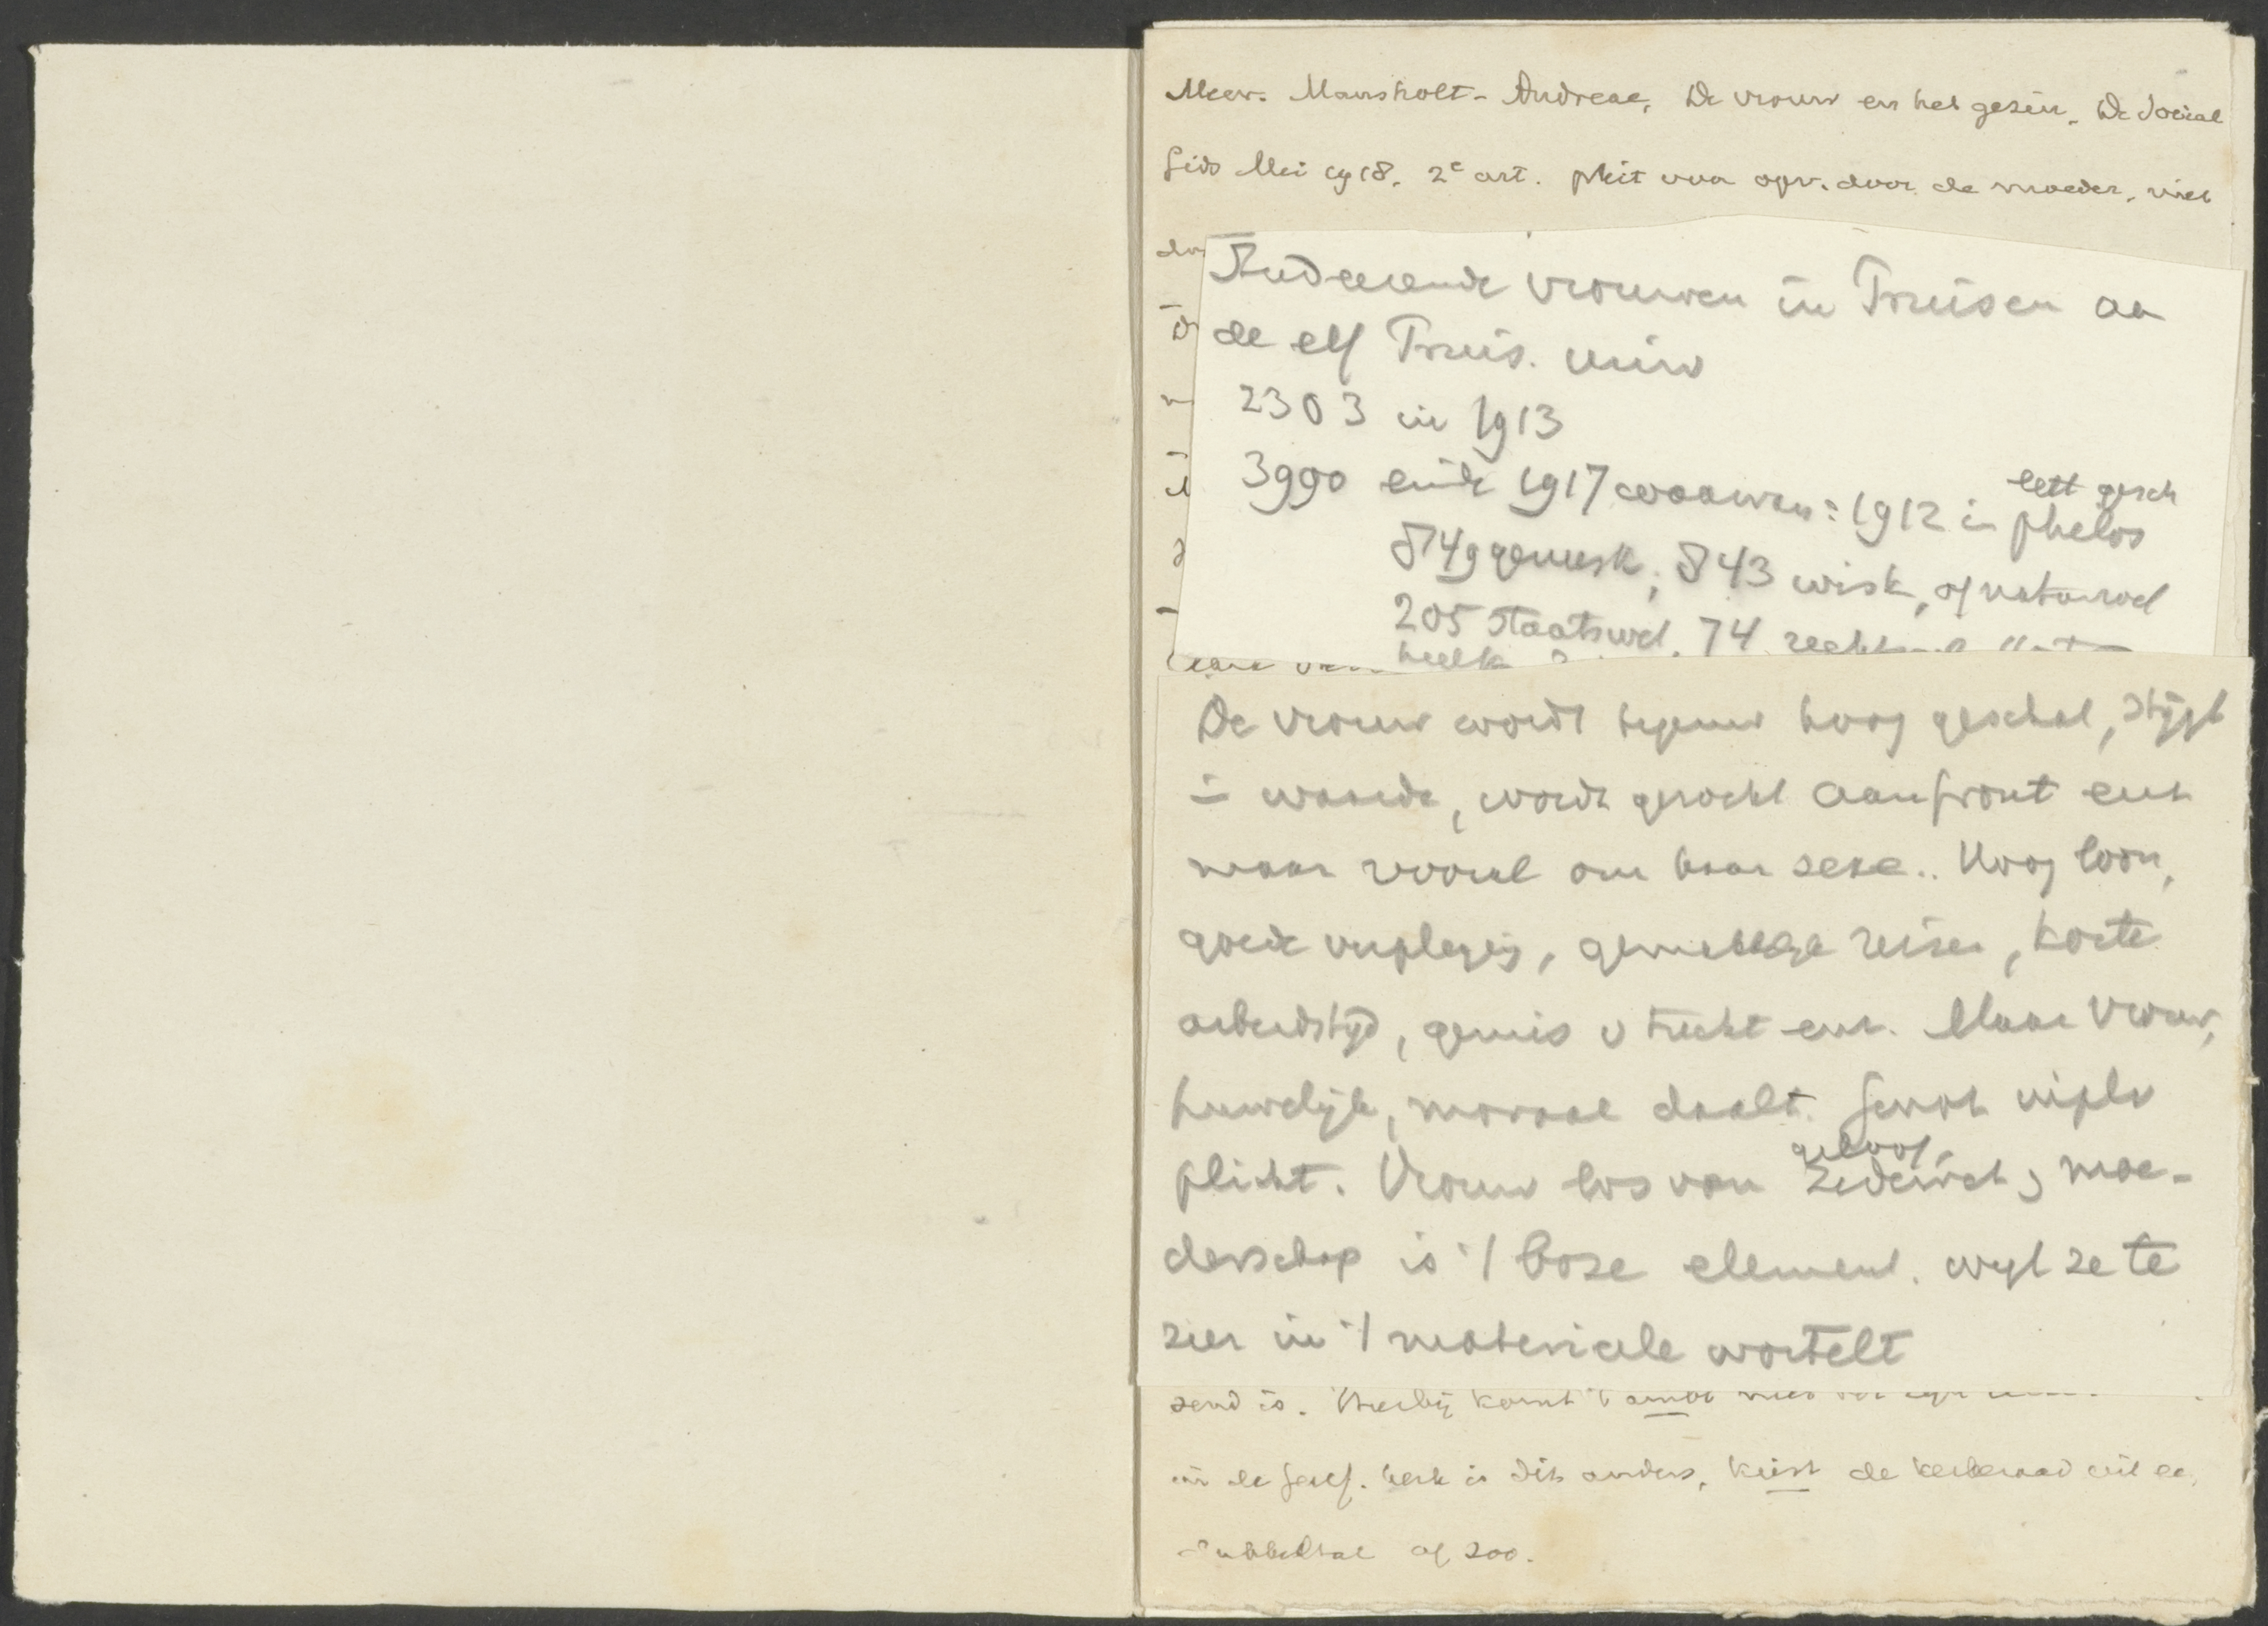 Mevr. Mansholt-Andreae, De vrouw en het gezin, De Social
Gids Mei 1918. 2e art. pleit voor opv. door de moeder, niet
Studeerende vrouwen in Pruisen aa
de elf Pruis. univ
2303 in 1913
3990 einde 1917 waarvan: 1912 in philos
lett gesch
849 geneesk, 843 wisk, of natuurwet
205 Staatswet. 74
De vrouw wordt tegenw hoog geschat, stijgt
in waarde, wordt gezocht aan front enz
maar vooral om haar sexe.. Hoog loon,
goede verpleging, gemakkelijke reizen, korte
arbeidstijd, gemis v tucht enz. Maar vrouw,
huwelijk, moraal daalt. Genot in pl v
plicht. Vrouw los van zedewet,
geloof,
moe-
derschap is 't boze element. wijl ze te
zeer in 't materieele wortelt
zend is. Hierbij komt 't ambt
in de Geref. kerk is dit anders, kiest de kerkeraad uit ee
dubbeltal of zoo.